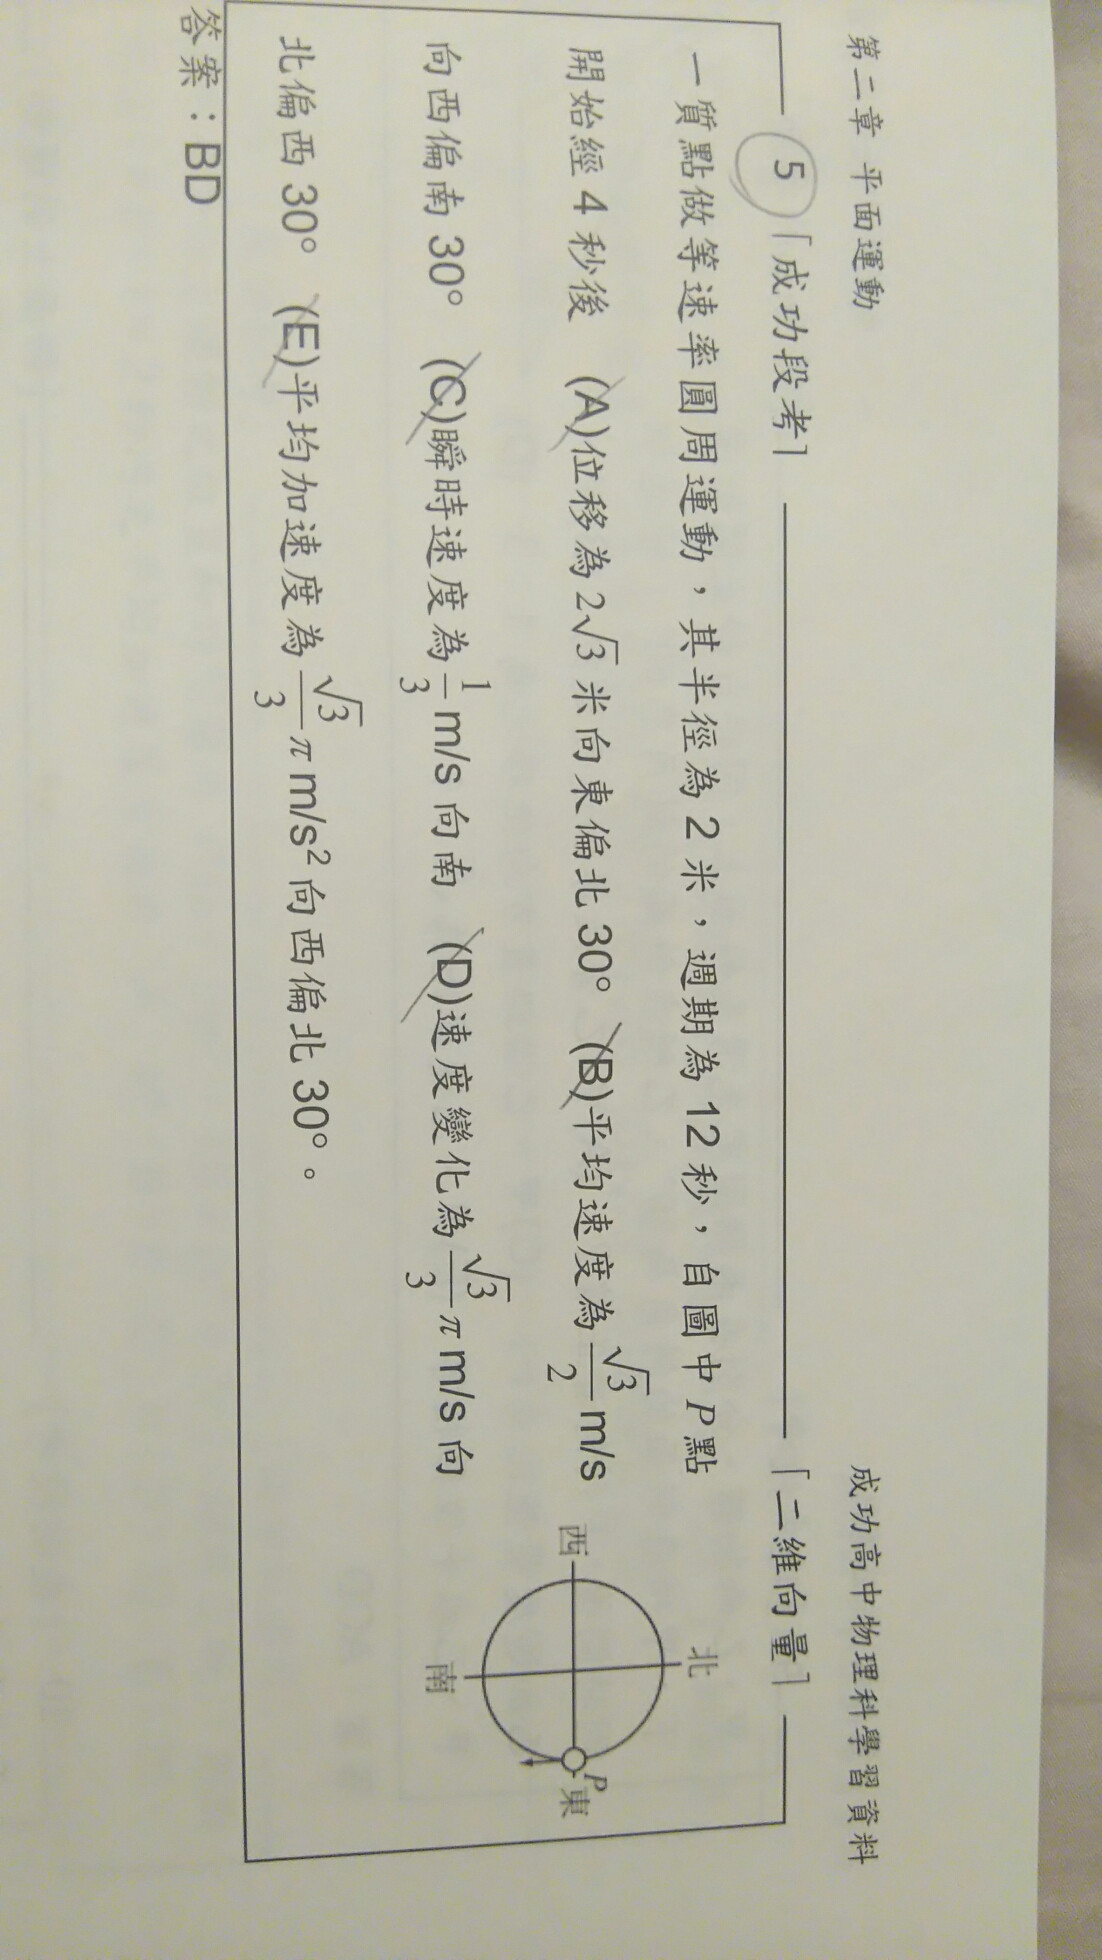 第二章 平面運動
成功高中物理科學習資料
5「成功段考」
「二維向量」
一質點做等速率圓周運動，其半徑為 2 米，週期為 12 秒，自圖中 P 點
開始經 4 秒後 (A)位移為 2√3 米向東偏北 30° (B)平均速度為 √3/2 m/s
向西偏南 30° (C)瞬時速度為 1/3 m/s 向南 (D)速度變化為 √3/3 π m/s 向
北偏西 30° (E)平均加速度為 √3/3 π m/s² 向西偏北 30°。
北
西
P
東
南
答案：BD